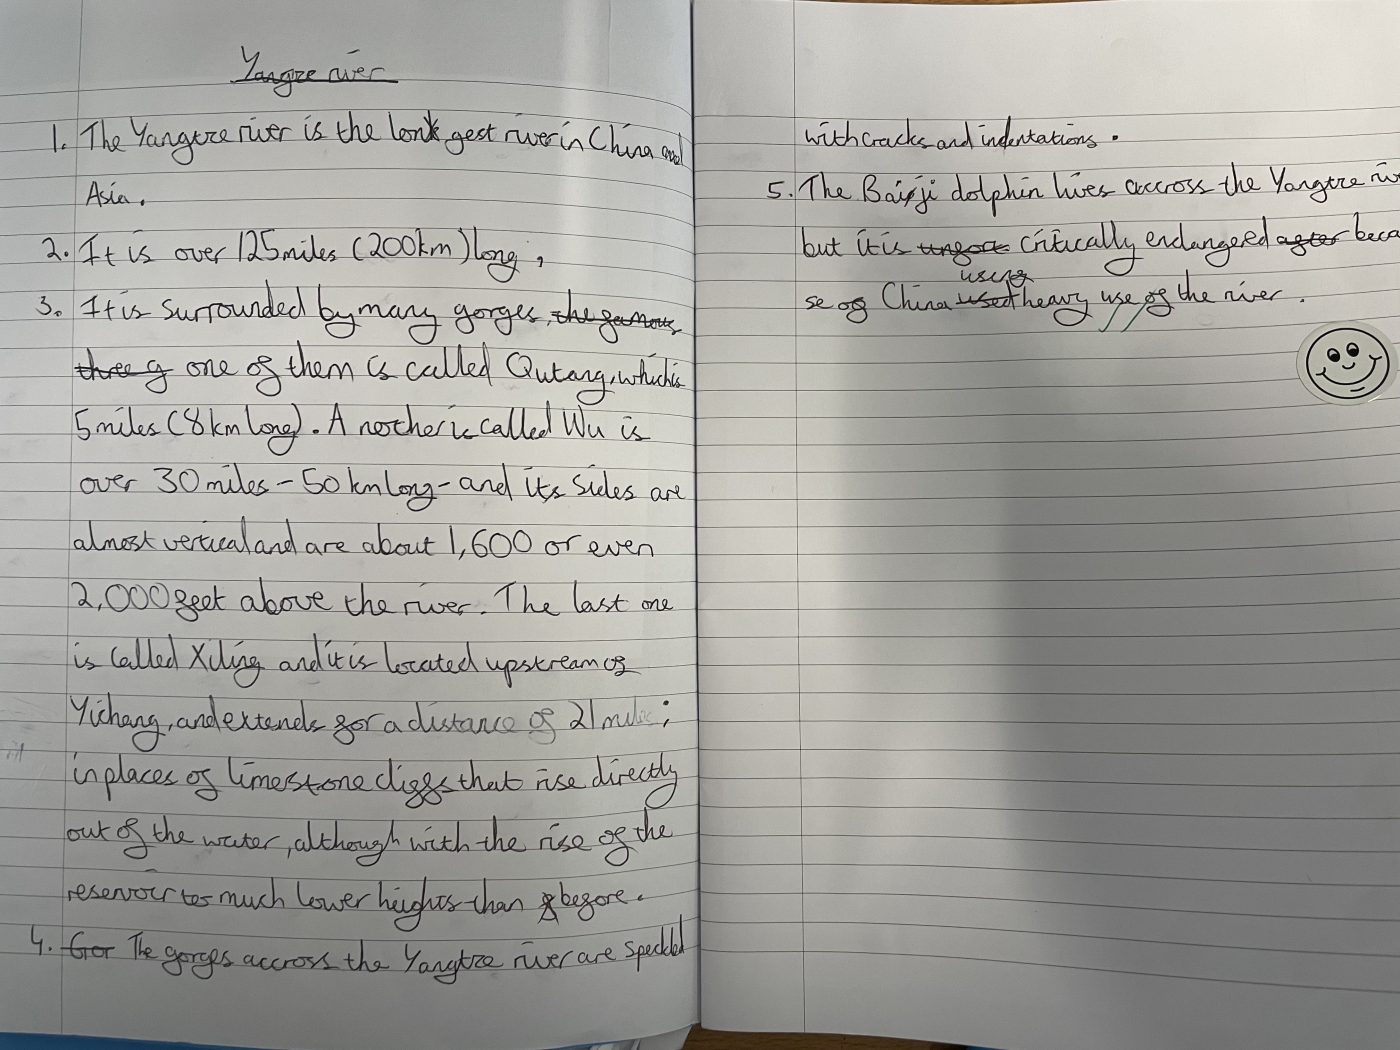 Yangze river
1. The Yangtze river is the longest river in China and
Asia.
2. It is over 125 miles (200km) long,
3. It is surrounded by many gorges, the famous
three g one of them is called Qutang, which is
5 miles (8 km long). Another is called Wu is
over 30 miles - 50 km long - and its sides are
almost vertical and are about 1,600 or even
2,000 feet above the river. The last one
is called Xiling and it is located upstream of
Yichang, and extends for a distance of 21 miles;
in places of limestone cliffs that rise directly
out of the water, although with the rise of the
reservoir to much lower heights than before.
4. Gor The gorges accross the Yangtze river are speckled
with cracks and indentations.
5. The Baiji dolphin lives accross the Yangtze riv
but it is critically endangered after beca
using
se of China used heavy use of the river.